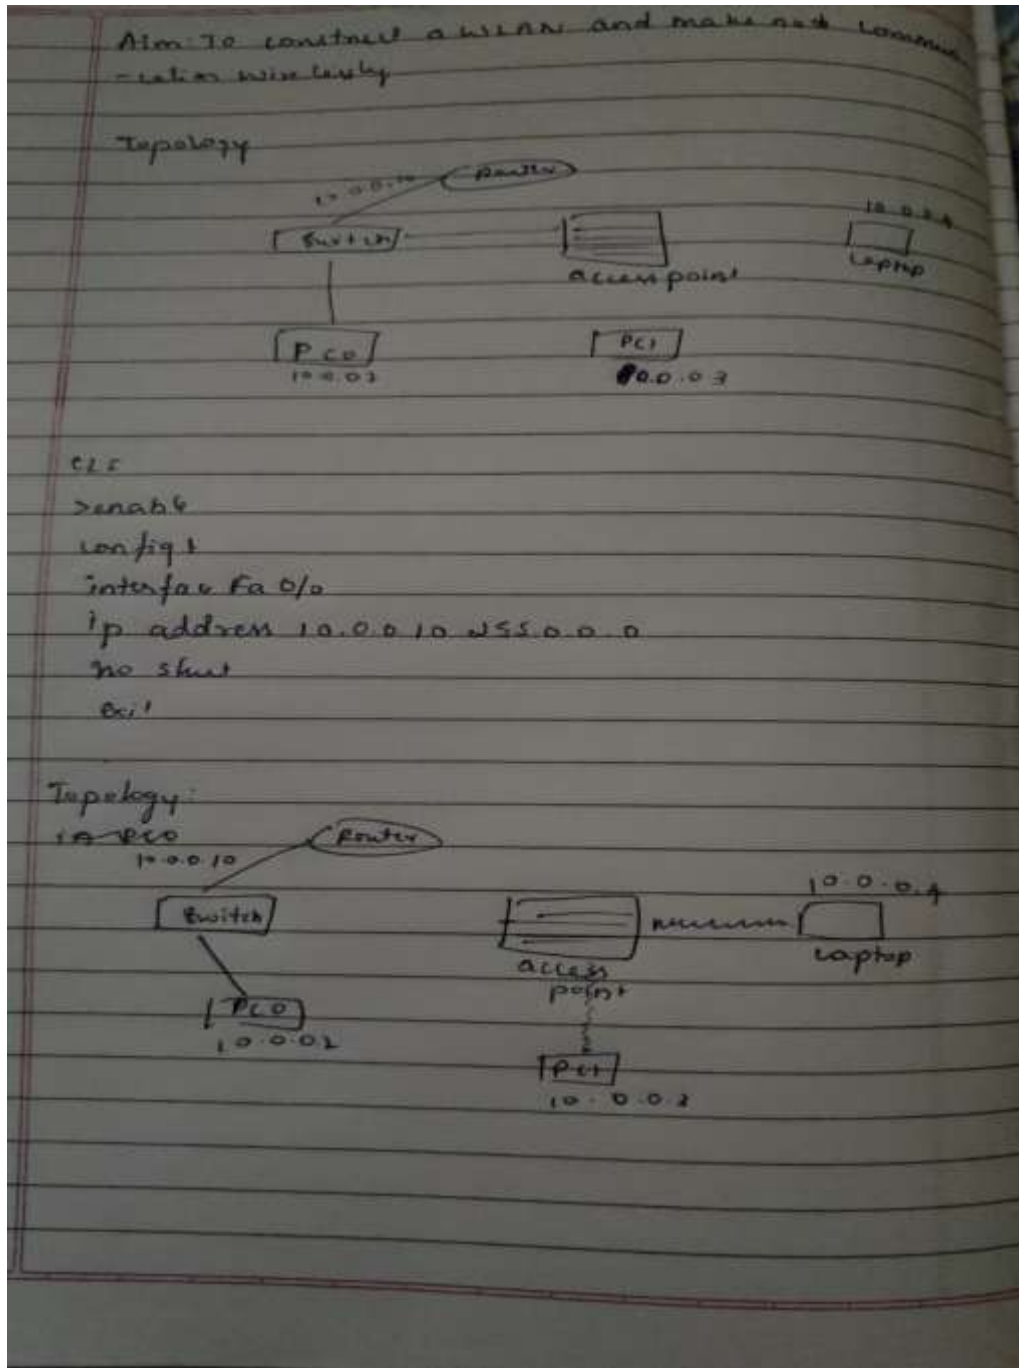 Aim: To construct a WLAN and make nod commun
-cation wirelessly
Topology
10.0.0.10 Router
Switch
10.0.0.4
access point
Laptop
PC0
10.0.02
PC1
10.0.03
CLI
>enable
config t
interface Fa 0/0
ip address 10.0.0.10 255.0.0.0
no shut
exit
Topology:
10.0.0.10
Router
Switch
10.0.0.4
Laptop
access
point
PC0
10.0.02
PC1
10.0.0.3